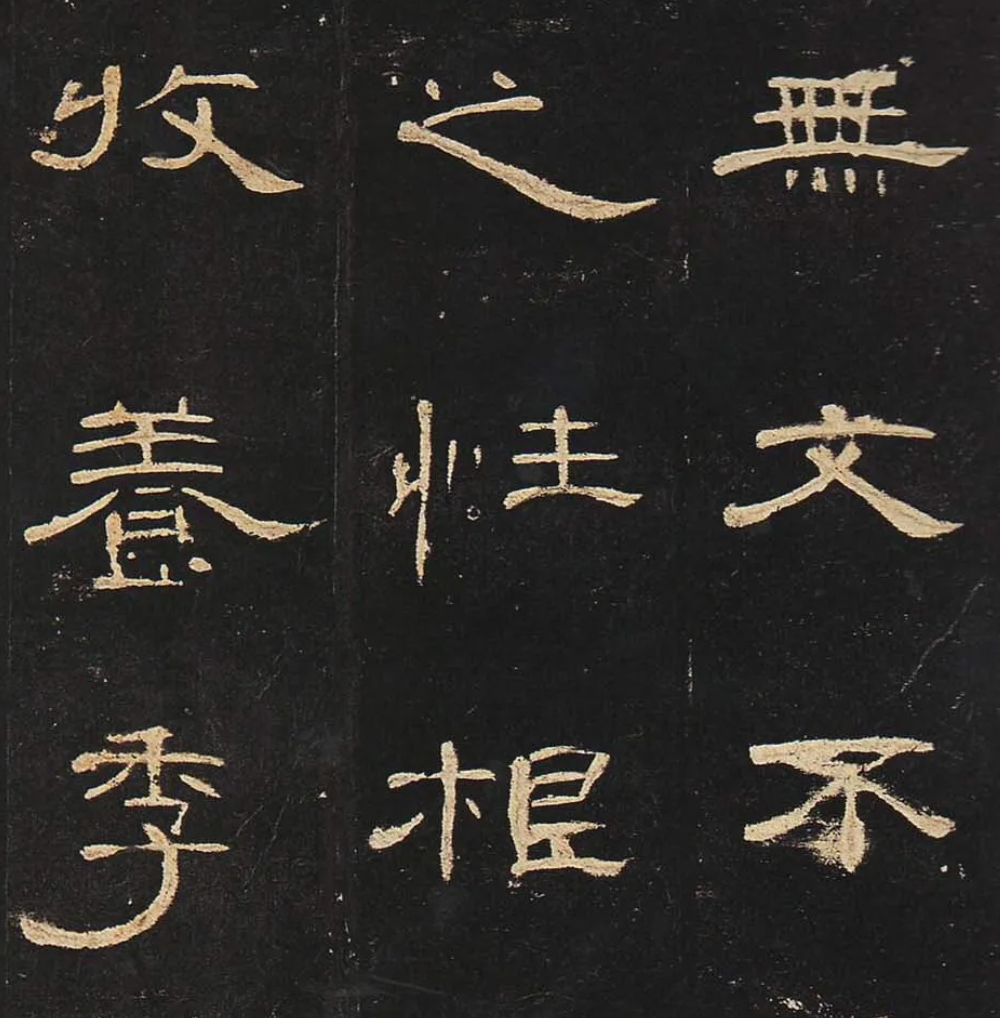 無文不
之性根
收養季